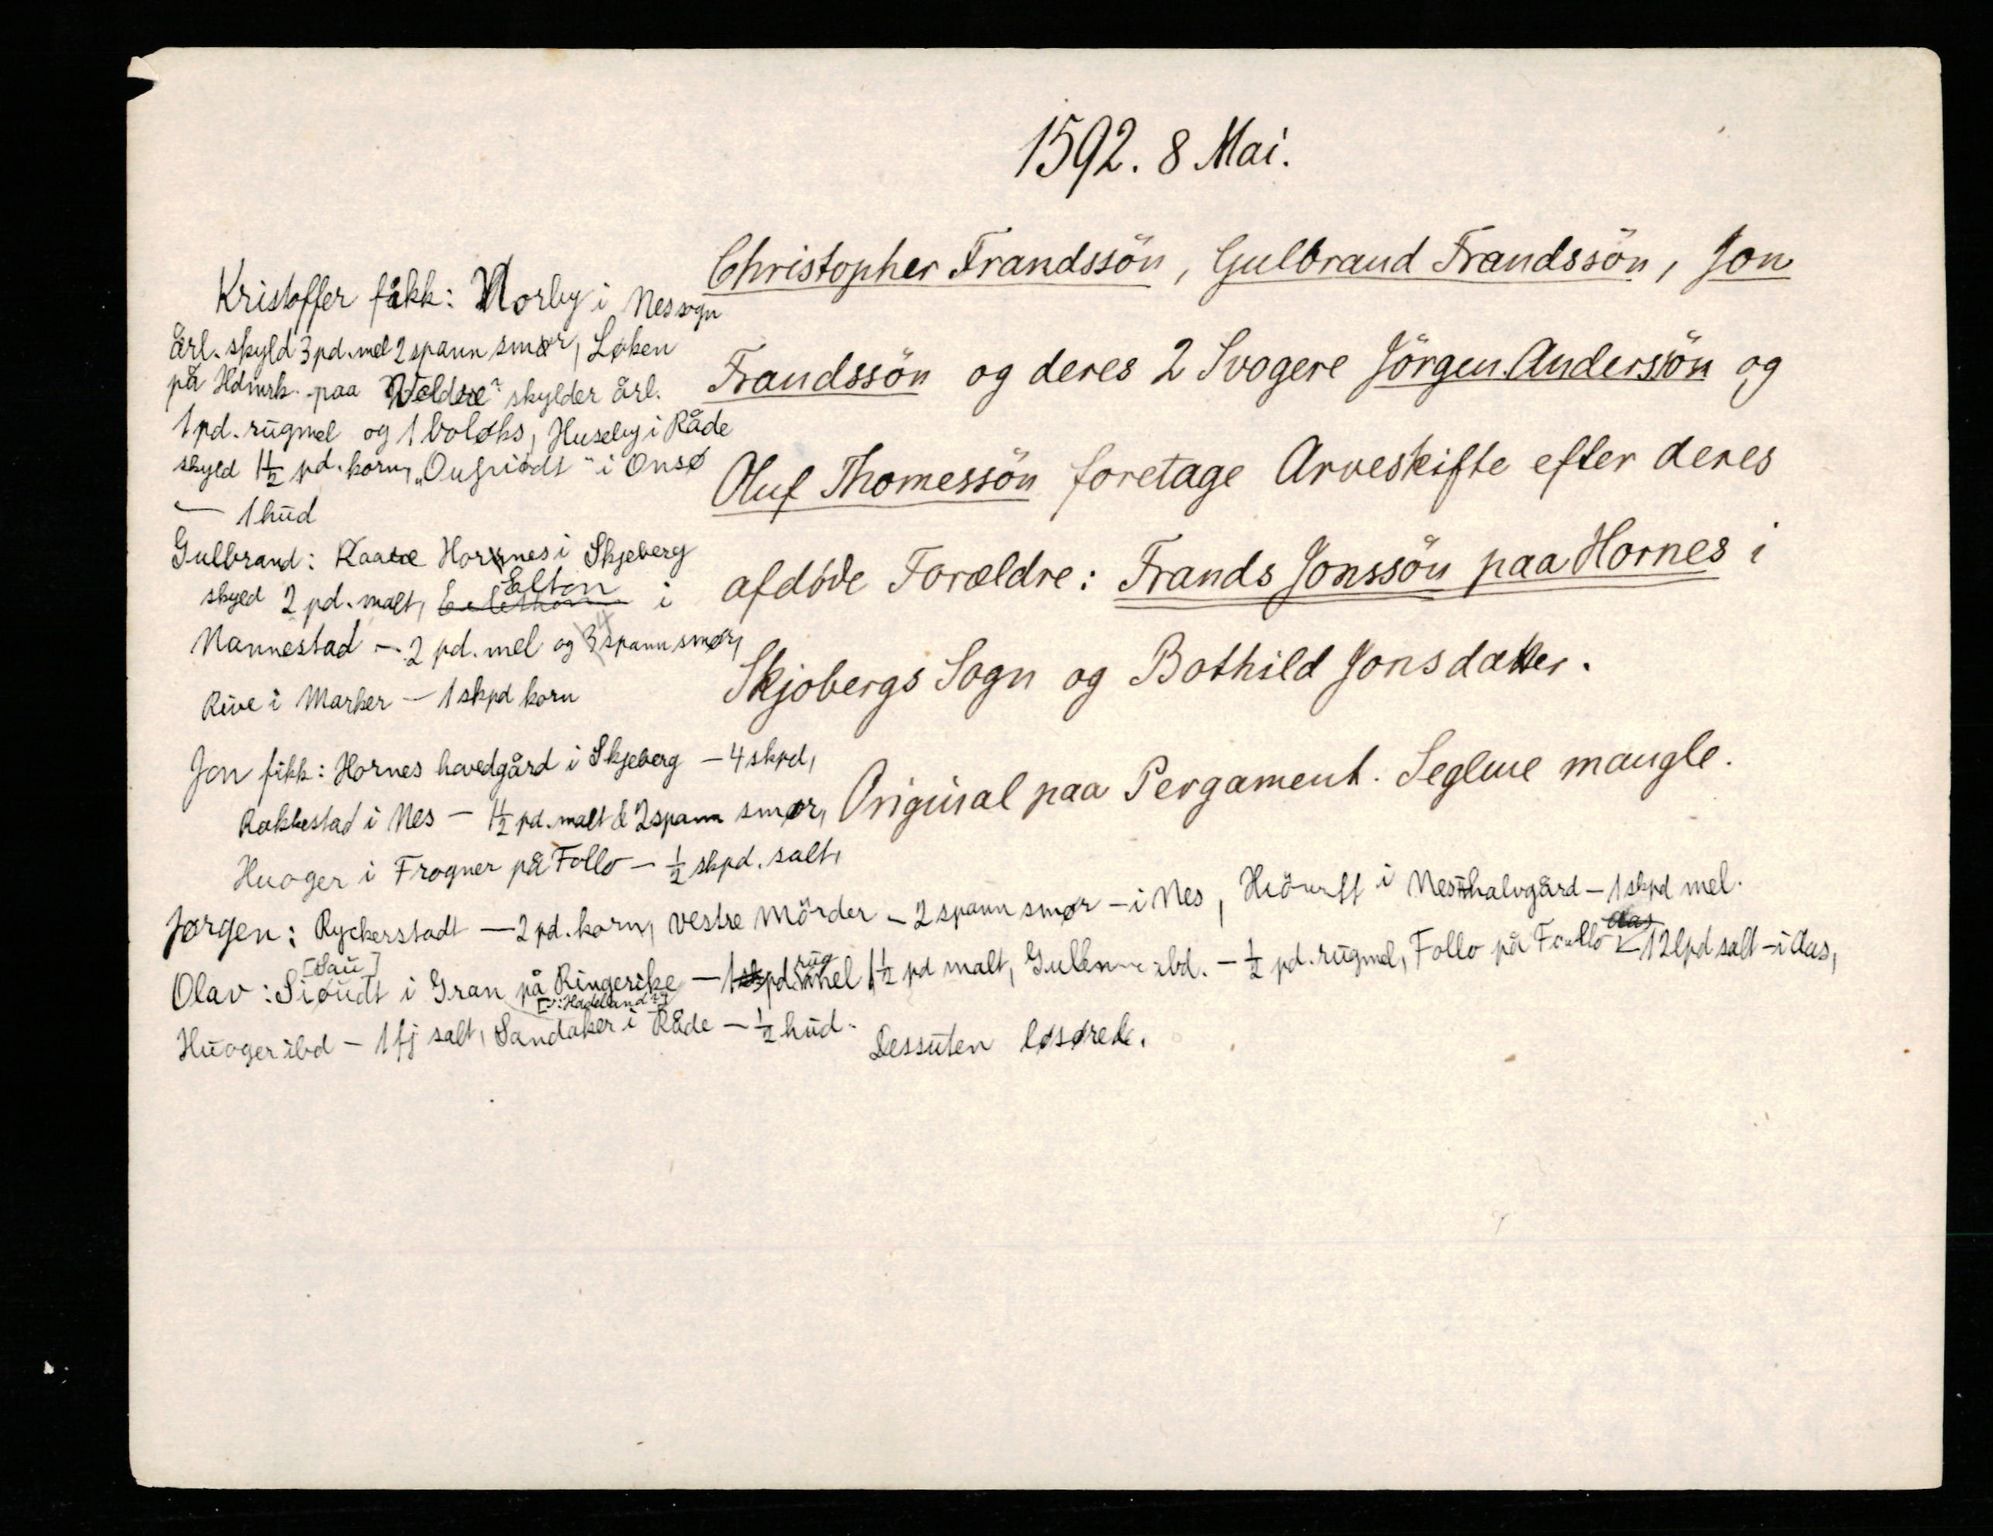 1592. 8 Mai.
Christopher Frandssön, Gulbrand Frandssön, Jon
Frandssön og deres 2 Svogere Jörgen Anderssön og
Oluf Thomessön foretage Arveskifte efter deres
afdöde Forældre: Frands Jonssön paa Hornes i
Skjebergs Sogn og Bothild Jonsdatter.
Original paa Pergament. Seglene mangle.
Kristoffer fikk: Norby i Nes sogn
årl. skyld 3 pd. mel 2 spann smør, Løken
på Hdmrk. paa skylder årl.
1 pd. rugmel og 1 boløks, Huseby i Råde
skyld 1½ pd. korn, i Onsø
— 1 hud
Gulbrand: Hornes i Skjeberg
skyld 2 pd. malt, Elton i
Nannestad — 2 pd. mel og 4 spann smør,
Rive i Marker — 1 skpd korn
Jon fikk: Hornes hovedgård i Skjeberg — 4 skpd,
Rakkestad i Nes — 1½ pd. malt & 2 spann smør,
Huoger i Frogner på Follo — ½ skpd. salt,
Jørgen: Ryckerstadt — 2 pd. korn, vestre Mörder — 2 spann smør — i Nes, i Nes halvgård — 1 skpd mel.
Olav: Sioudt [Sau] i Gran på Ringerike [ɔ: Hadeland?] — 1 pd. rugmel 1½ pd malt, ibd. — ½ pd. rugmel, Follo på Follo — 12 lpd salt — i Aas,
Huoger ibd — 1 fj salt, Sandaker i Råde — ½ hud. Dessuten løsøre.